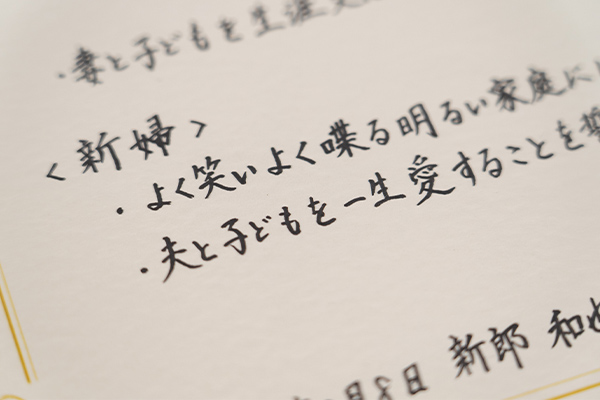 ・妻と子どもを生涯
<新婦>
・よく笑いよく喋る明るい家庭に
・夫と子どもを一生愛することを誓
月8日 新郎 和